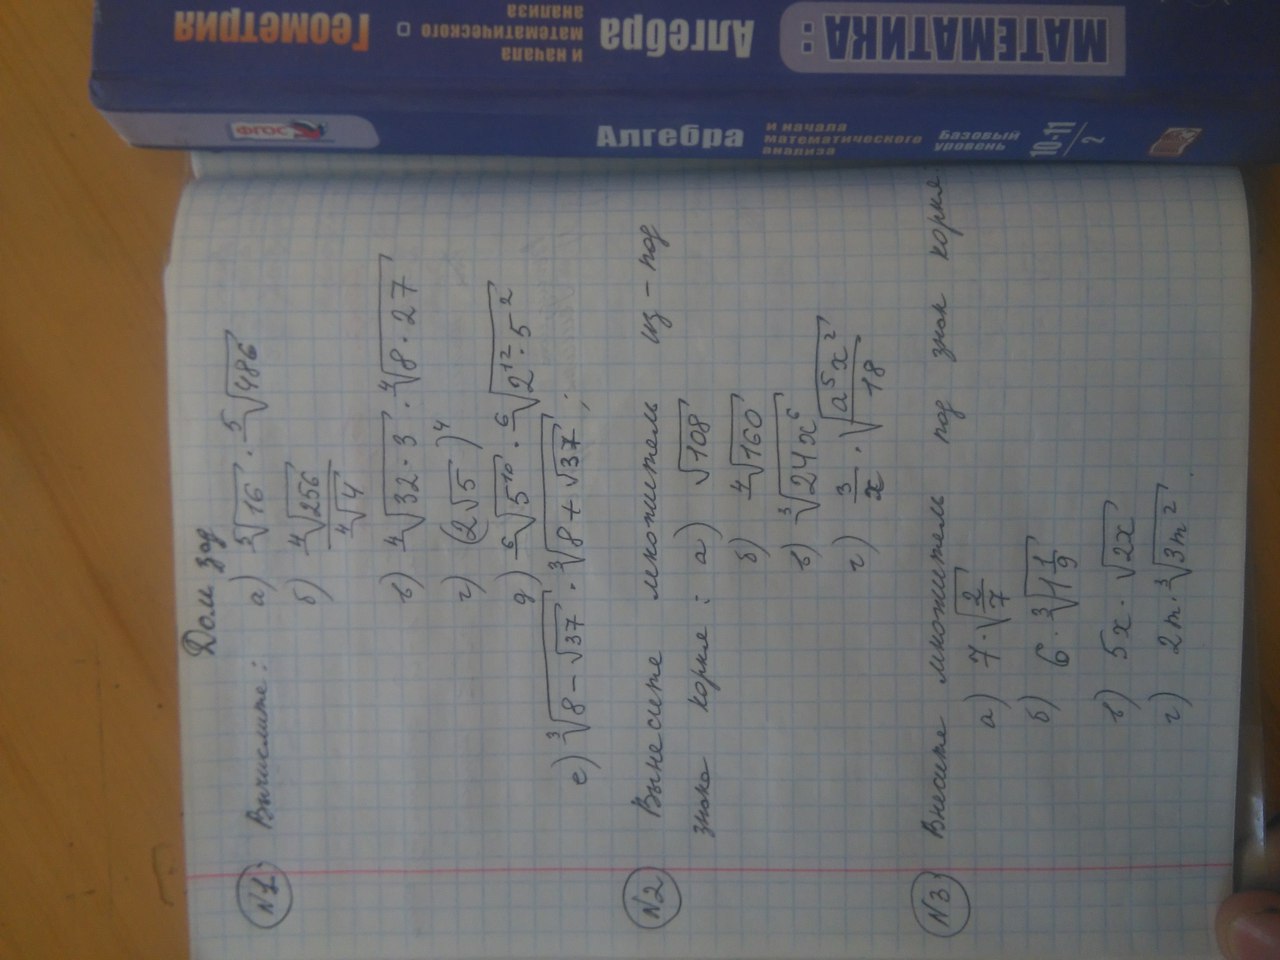 МАТЕМАТИКА:
Алгебра
и начала
математического
анализа
Геометрия
ФГОС
Алгебра
и начала
математического
анализа
Базовый
уровень
10-11
2
Дом зад
№1 Вычислите: а) ⁵√16 · ⁵√486
б) ⁴√256 / ⁴√4
в) ⁴√(32·3) · ⁴√(8·27)
г) (2√5)⁴
д) ⁶√5¹⁰ · ⁶√(2¹²·5²)
е) ³√(8-√37) · ³√(8+√37);
№2 Вынесите множитель из-под
знака корня: а) √108
б) ⁴√160
в) ³√(24x⁶)
г) 3/x · √(a⁵x²/18)
№3 Внесите множитель под знак корня
а) 7·√(2/7)
б) 6·³√(1 1/9)
в) 5x·√(2x)
г) 2m·³√(3m²)